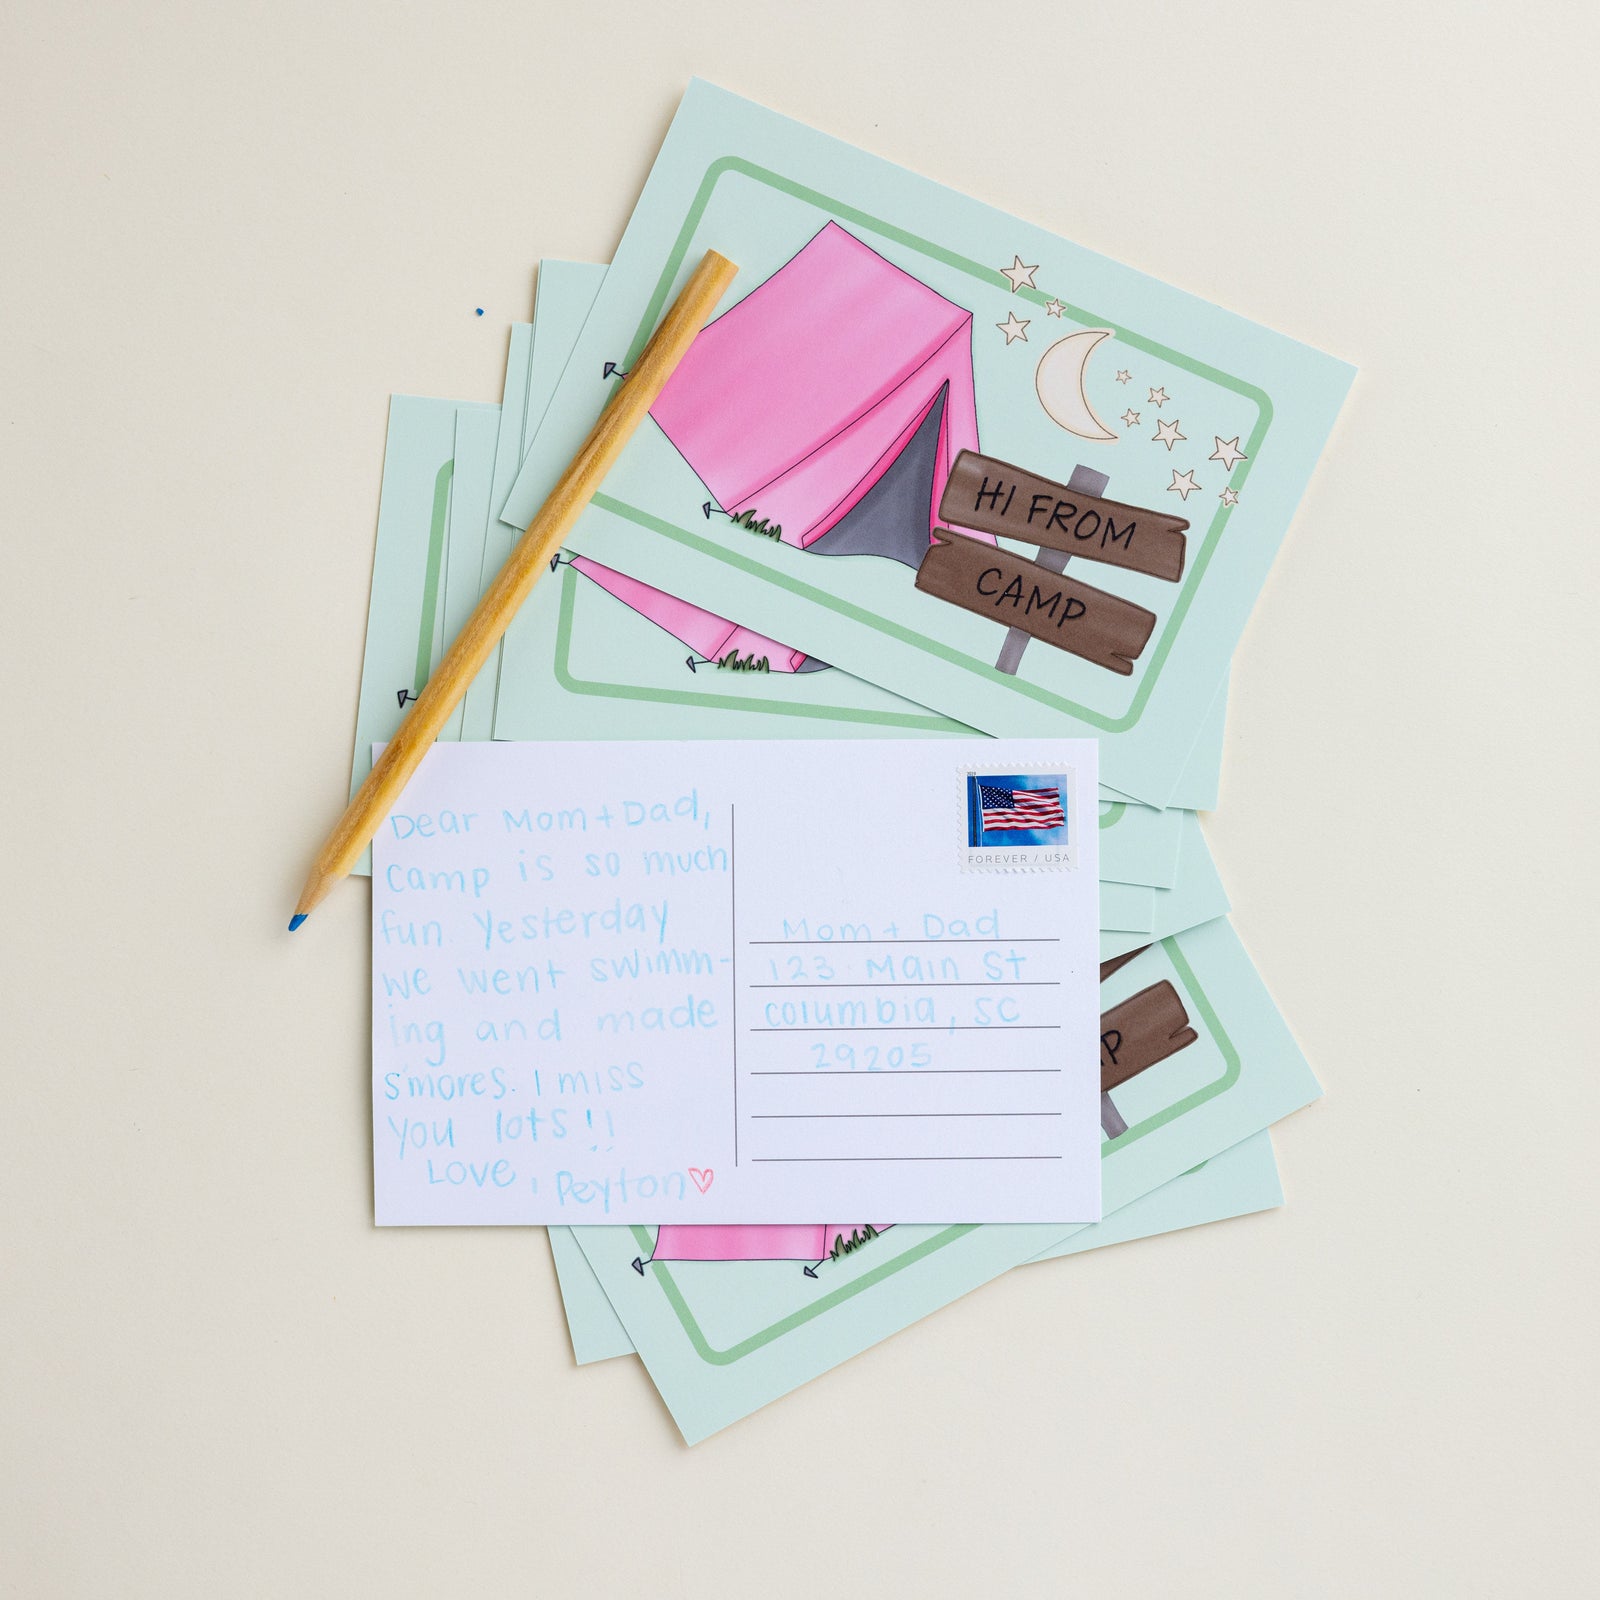 HI FROM
CAMP
Dear Mom + Dad,
Camp is so much
fun. Yesterday
we went swimm-
ing and made
s'mores. I miss
you lots!!
Love, Peyton
2019
FOREVER / USA
Mom + Dad
123 Main St
Columbia, SC
29205
P